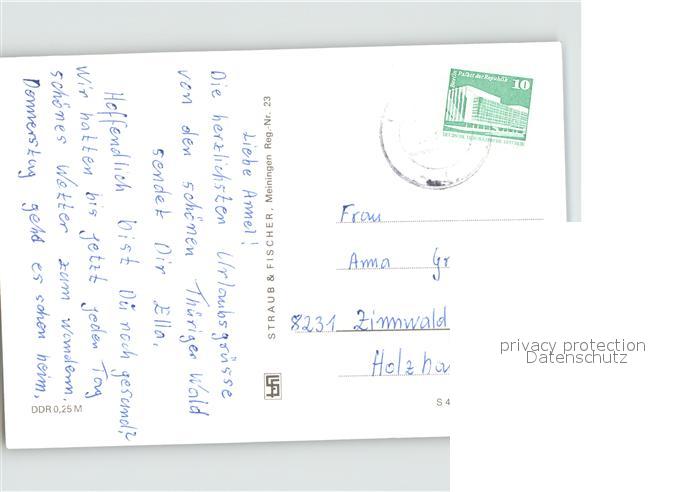 Liebe Annel!
Die herzlichsten Urlaubsgrüsse
von den schönen Thüringer Wald
sendet Dir Ella.
Hoffendlich bist Du noch gesund?
Wir hatten bis jetzt jeden Tag
schönes Wetter zum wandern.
Donnerstag geht es schon heim.
DDR 0,25 M
STRAUB & FISCHER, Meiningen Reg.-Nr. 23
Berlin, Palast der Republik
10
DEUTSCHE DEMOKRATISCHE REPUBLIK
Frau
Anna Gr
8231 Zinnwald
Holzha
S 4
privacy protection
Datenschutz